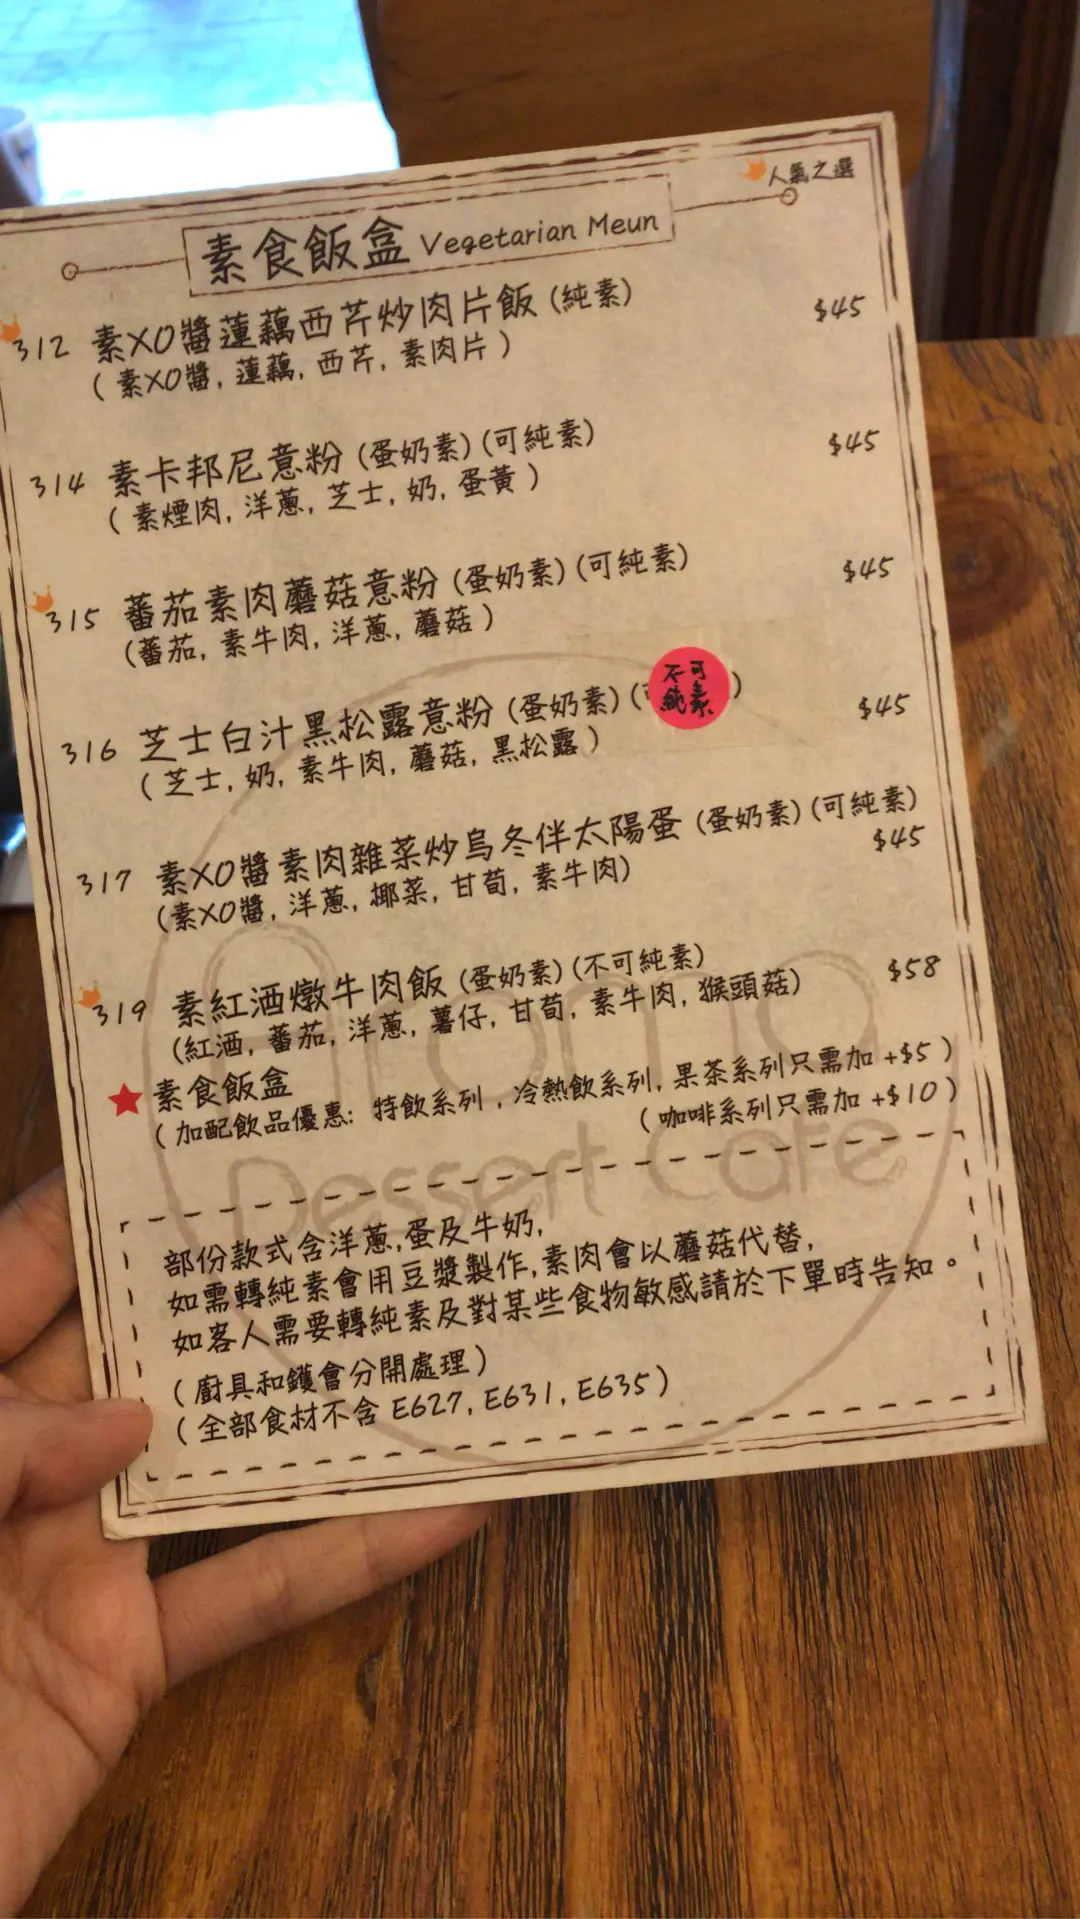 人氣之選
素食飯盒 Vegetarian Meun
312 素XO醬蓮藕西芹炒肉片飯 (純素) $45
(素XO醬, 蓮藕, 西芹, 素肉片)
314 素卡邦尼意粉 (蛋奶素) (可純素) $45
(素煙肉, 洋蔥, 芝士, 奶, 蛋黃)
315 蕃茄素肉蘑菇意粉 (蛋奶素) (可純素) $45
(蕃茄, 素牛肉, 洋蔥, 蘑菇)
316 芝士白汁黑松露意粉 (蛋奶素) ( 不可純素 ) $45
(芝士, 奶, 素牛肉, 蘑菇, 黑松露)
317 素XO醬素肉雜菜炒烏冬伴太陽蛋 (蛋奶素) (可純素)
$45
(素XO醬, 洋蔥, 椰菜, 甘荀, 素牛肉)
319 素紅酒燉牛肉飯 (蛋奶素) (不可純素) $58
(紅酒, 蕃茄, 洋蔥, 薯仔, 甘荀, 素牛肉, 猴頭菇)
素食飯盒
(加配飲品優惠: 特飲系列, 冷熱飲系列, 果茶系列只需加 +$5)
(咖啡系列只需加 +$10)
Dessert Cafe
部份款式含洋蔥,蛋及牛奶,
如需轉純素會用豆漿製作,素肉會以蘑菇代替,
如客人需要轉純素及對某些食物敏感請於下單時告知。
(廚具和鑊會分開處理)
(全部食材不含 E627, E631, E635)